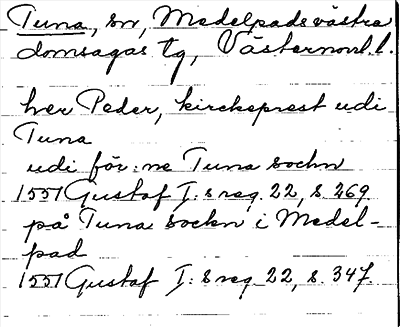 Tuna, sn, Medelpads västra
domsagas tg, Västernorrl. l.
her Peder, kirckeprest udi
Tuna
udi för:ne Tuna sochn
1551 Gustaf I:s reg. 22, s. 269
på Tuna sockn i Medel-
pad
1551 Gustaf I:s reg 22, s. 347.